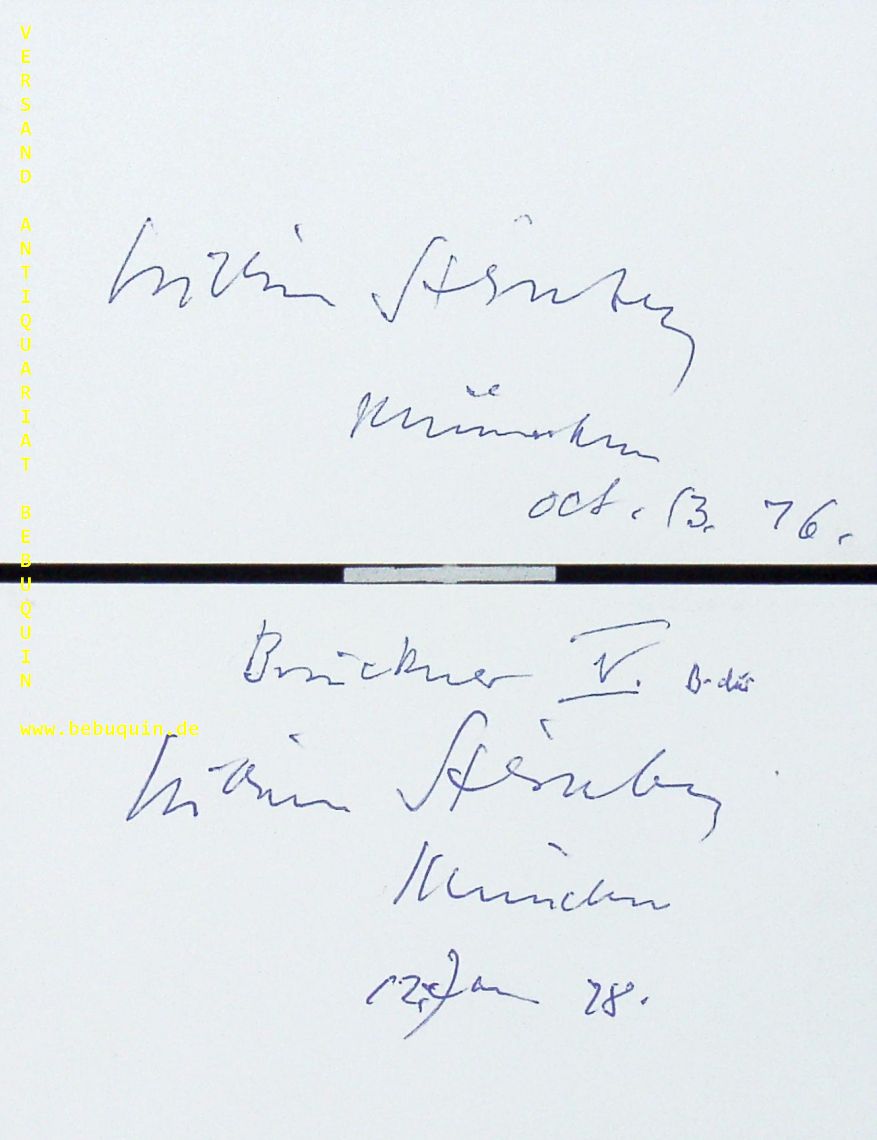 VERSAND ANTIQUARIAT BEBUQUIN
www.bebuquin.de
William Steinberg
München
oct. 13. 76.
Bruckner V. B-dur
William Steinberg
München
12. Jan 78.